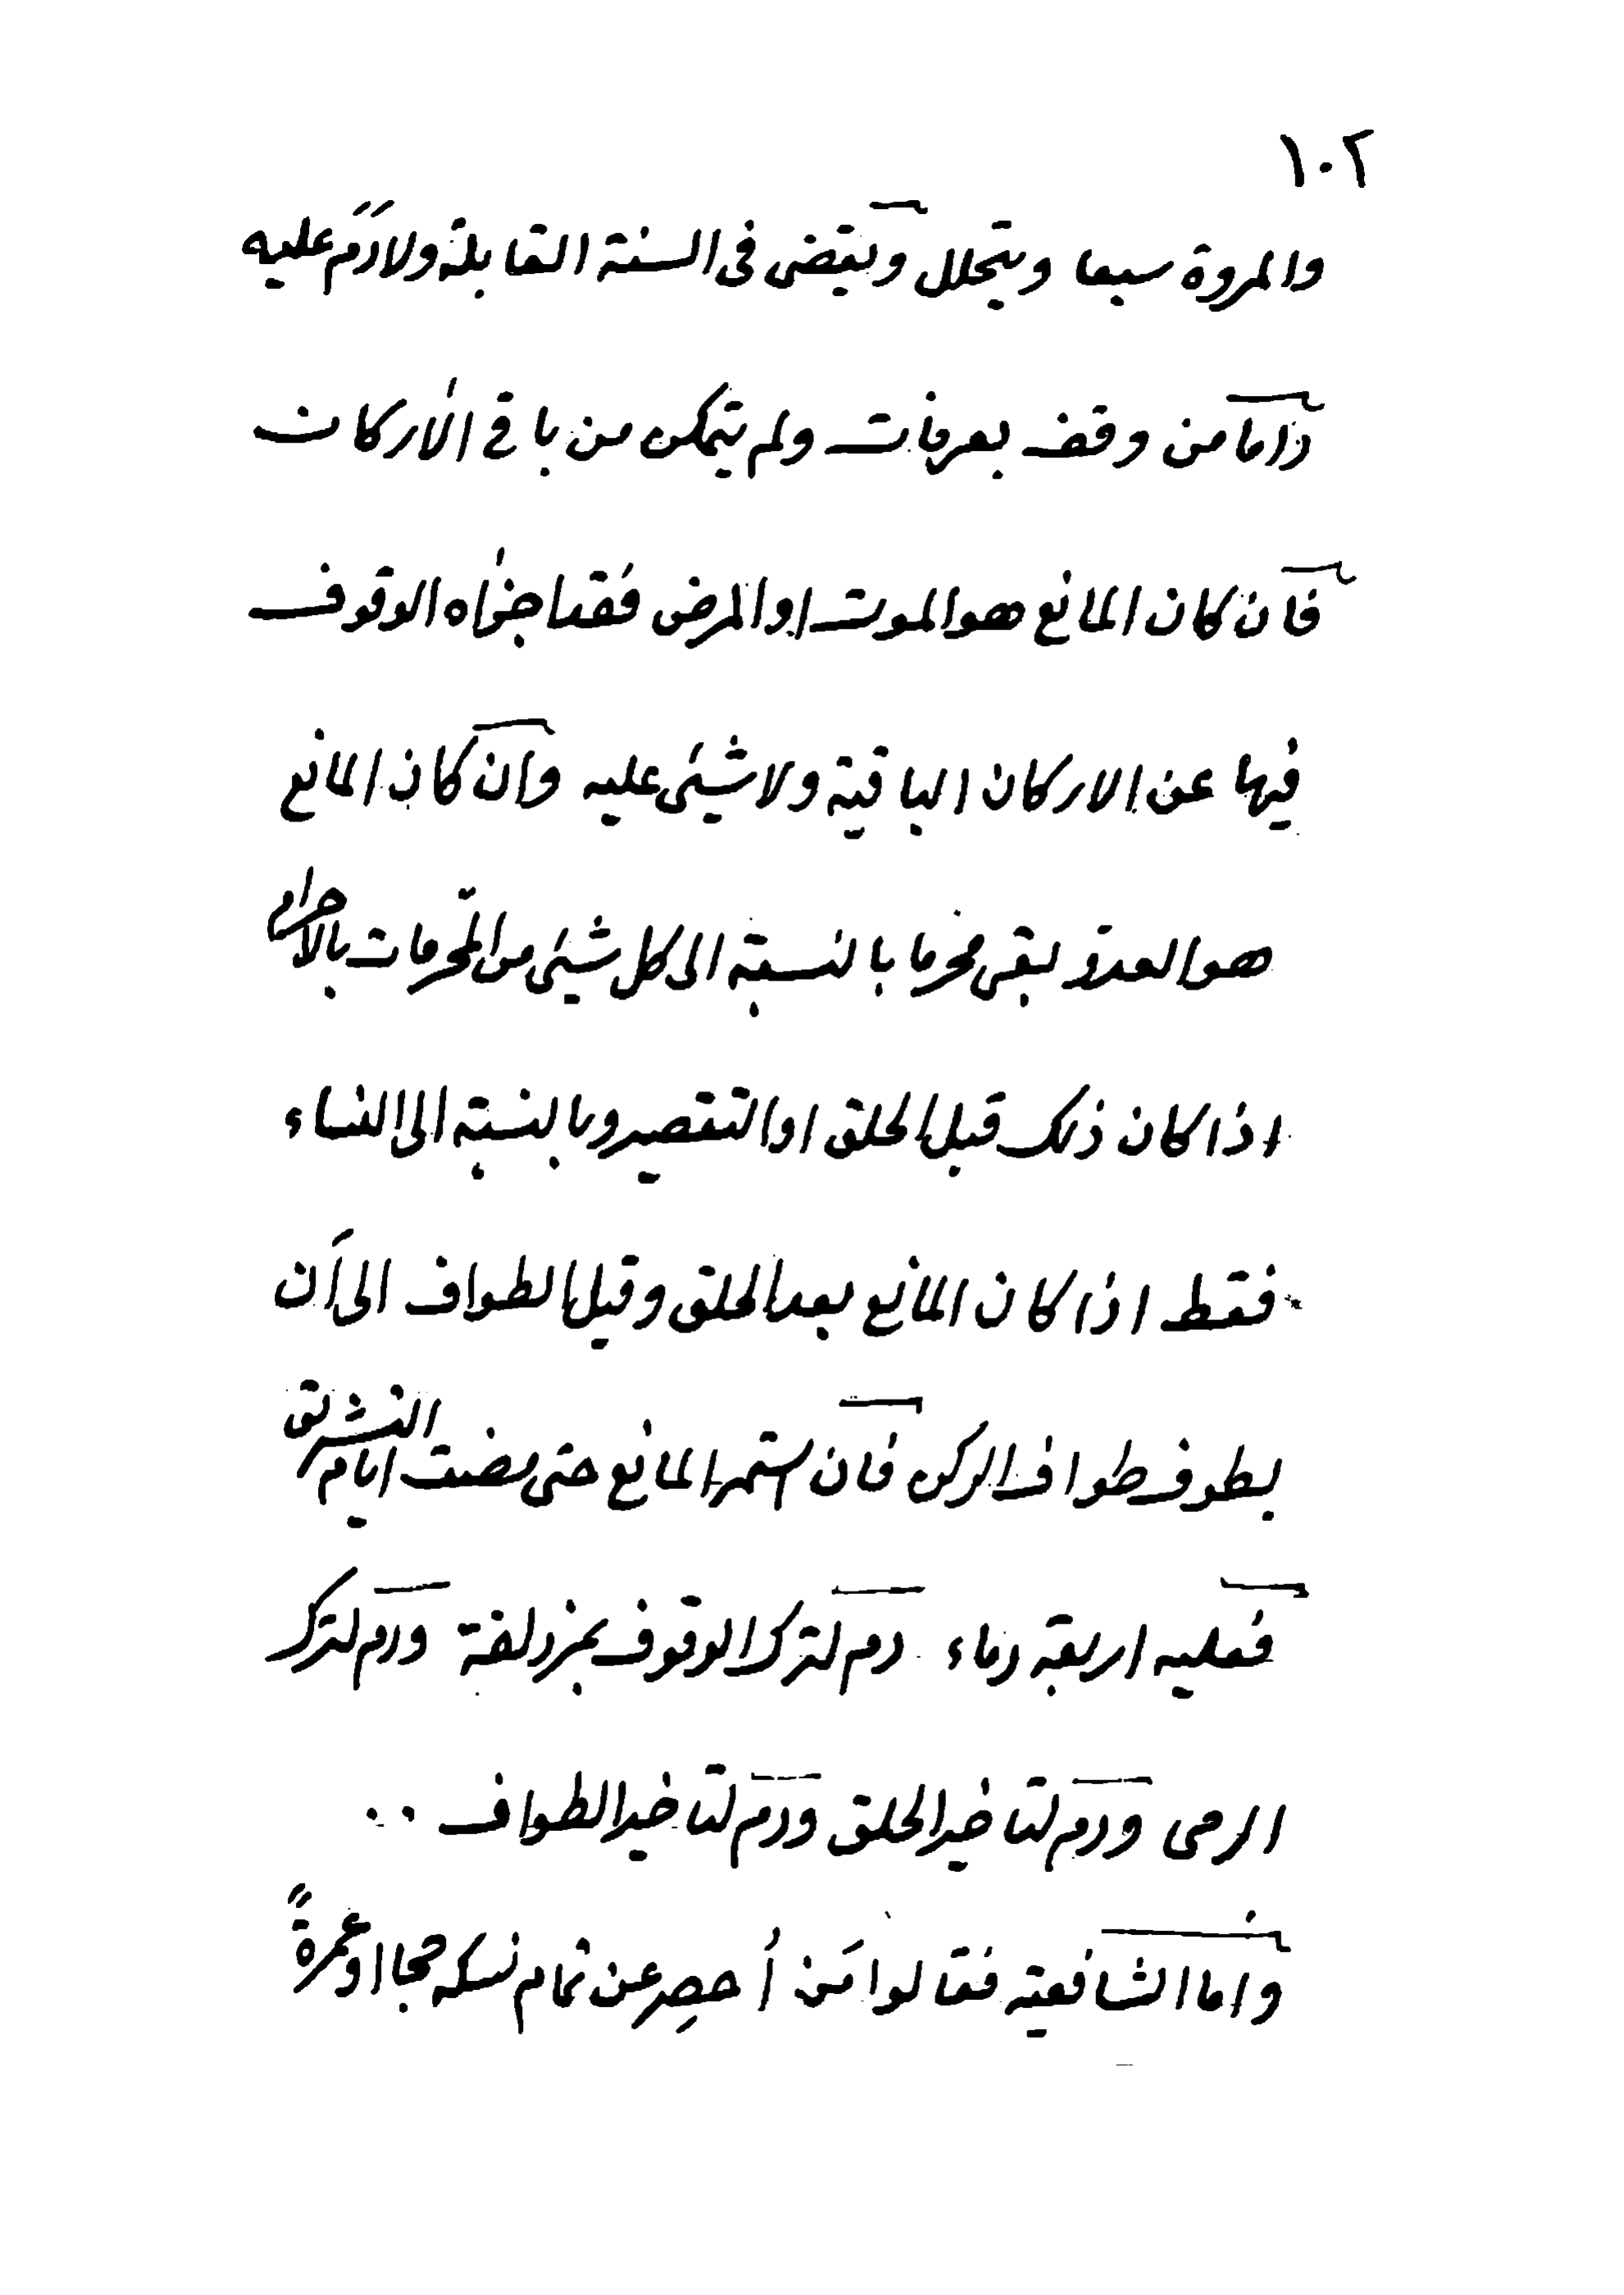 ١٠٢
والمروة سبعا ويتحلل ويقضى فى السنة القابلة ولا دَمَ عليه
واما من وقف بعرفات ولم يتمكن من باقى الأركان
فان كان المانع هو الموت او المرض فقد اجزأه الوقوف
فيها عن الاركان الباقية ولا شيئ عليه وان كان المانع
هو العدو بقى محرما بالنسبة الى كل شيئ من المحرمات بالاحرام
اذا كان ذلك قبل الحلق او التقصير وبالنسبة الى النساء
فقط اذا كان المانع بعد الحلق وقبل الطواف الى أن
يطوف طواف الركن فان استمر المانع حتى مضت ايام التشريق
فعليه اربعة دماء دم لترك الوقوف بمزدلفة ودم لترك
الرمى ودم لتاخير الحلق ودم لتاخير الطواف ..
واما الشافعية فقالوا مَن أُحصِر عن تمام نسكه حجا او عمرةً